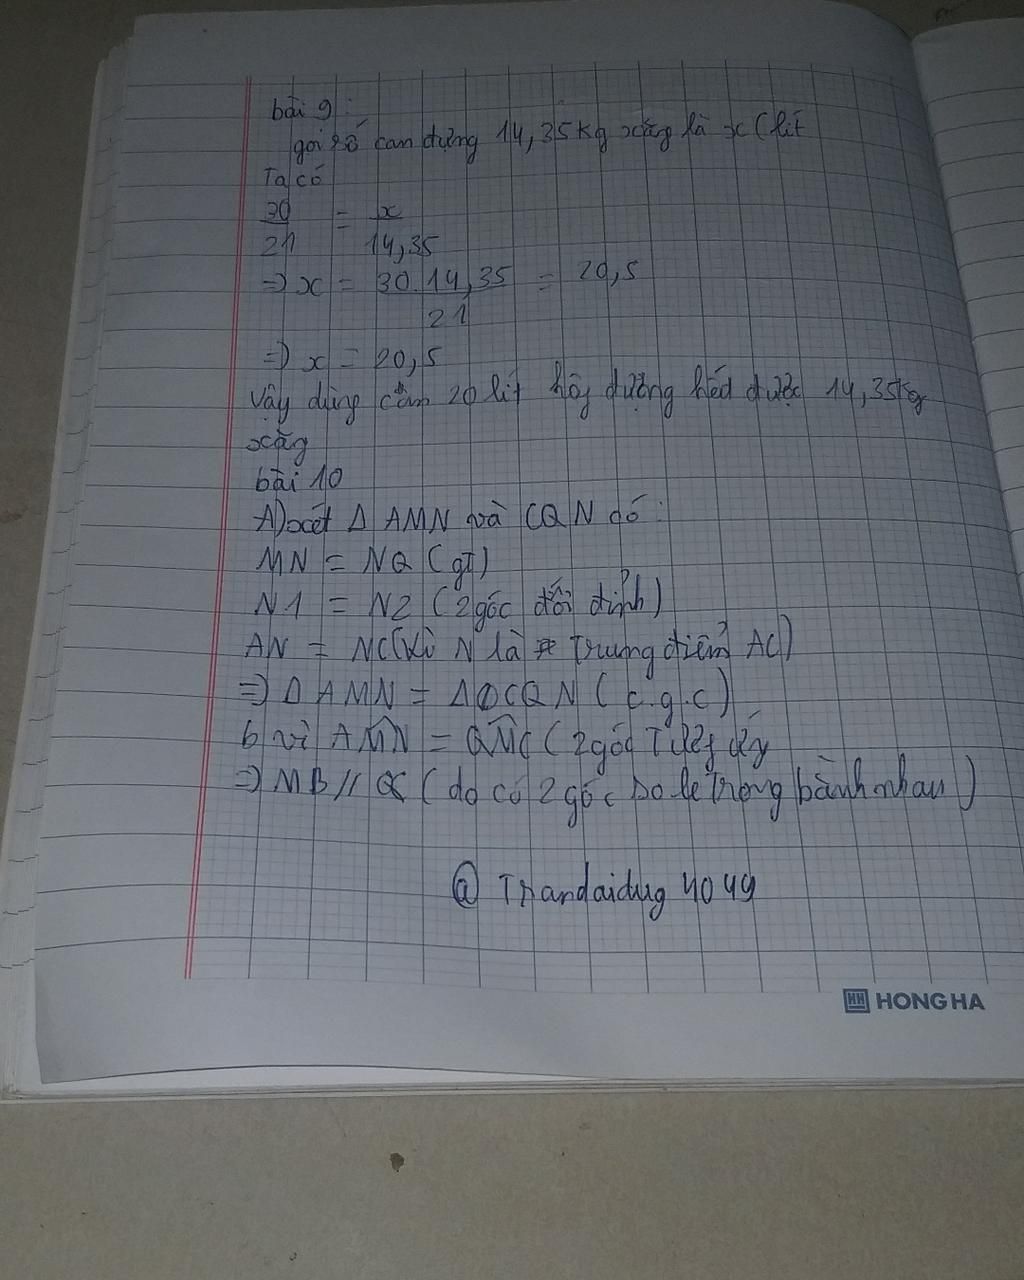 bài 9:
gọi số can đựng 14,35kg xăng là x (lít
Ta có
30 = x
21 14,35
=> x = 30.14,35 = 20,5
21
=> x = 20,5
vậy dùng can 20 lít đựng hết được 14,35kg
xăng
bài 10
A) xét Δ AMN và CQN có:
MN = NQ (gt)
N1 = N2 (2 góc đối đỉnh)
AN = NC (vì N là trung điểm AC)
=> Δ AMN = Δ CQN (c.g.c)
b vì AMN = QNC (2 góc Tương ứng
=> MB // QC (do có 2 góc so le Trong bành nhau)
@ Trandaidug 4049
HH HONG HA